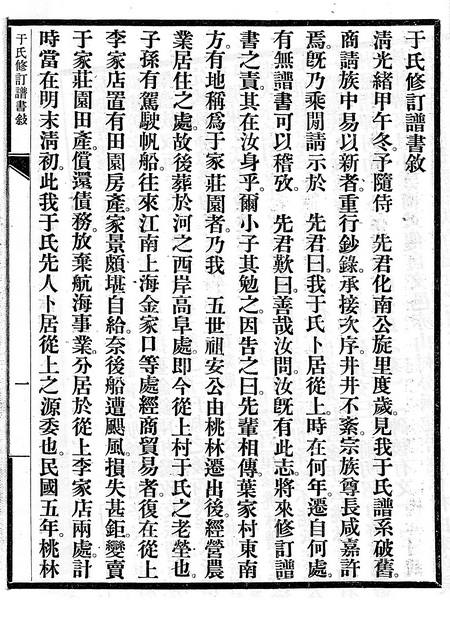 于氏修訂譜書敍
清光緒甲午冬。予隨侍　先君化南公旋里度歲。見我于氏譜系破舊。
商請族中易以新者。重行鈔錄。承接次序。井井不紊。宗族尊長。咸嘉許
焉。旣乃乘閒請示於　先君曰。我于氏卜居從上。時在何年。遷自何處。
有無譜書可以稽攷。　先君歎曰。善哉汝問。汝旣有此志。將來修訂譜
書之責。其在汝身乎。爾小子其勉之。因告之曰。先輩相傳。葉家村東南
方。有地稱爲于家莊園者。乃我　五世祖安公由桃林遷出後。經營農
業居住之處。故後葬於河之西岸高阜處。卽今從上村于氏之老塋也。
子孫有駕駛帆船。往來江南上海金家口等處經商貿易者。復在從上
李家店置有田園房產。家景頗堪自給。奈後船遭颶風。損失甚鉅。變賣
于家莊園田產。償還債務。放棄航海事業。分居於從上李家店兩處。計
時當在明末淸初。此我于氏先人卜居從上之源委也。民國五年。桃林
于氏修訂譜書敍
一